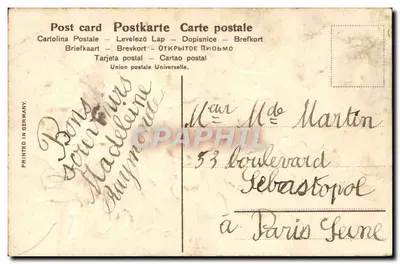 Post card Postkarte Carte postale
Cartolina Postale – Levelező Lap – Dopisnice – Brefkort
Briefkaart – Brevkort – ОТКРЫТОЕ ПИСЬМО
Tarjeta postal – Cartao postal
Union postale Universelle.
PRINTED IN GERMANY.
Bons
souvenirs
Madeleine
Raymonde
Meur Mde Martin
53 boulevard
Sebastopol
à Paris Seine